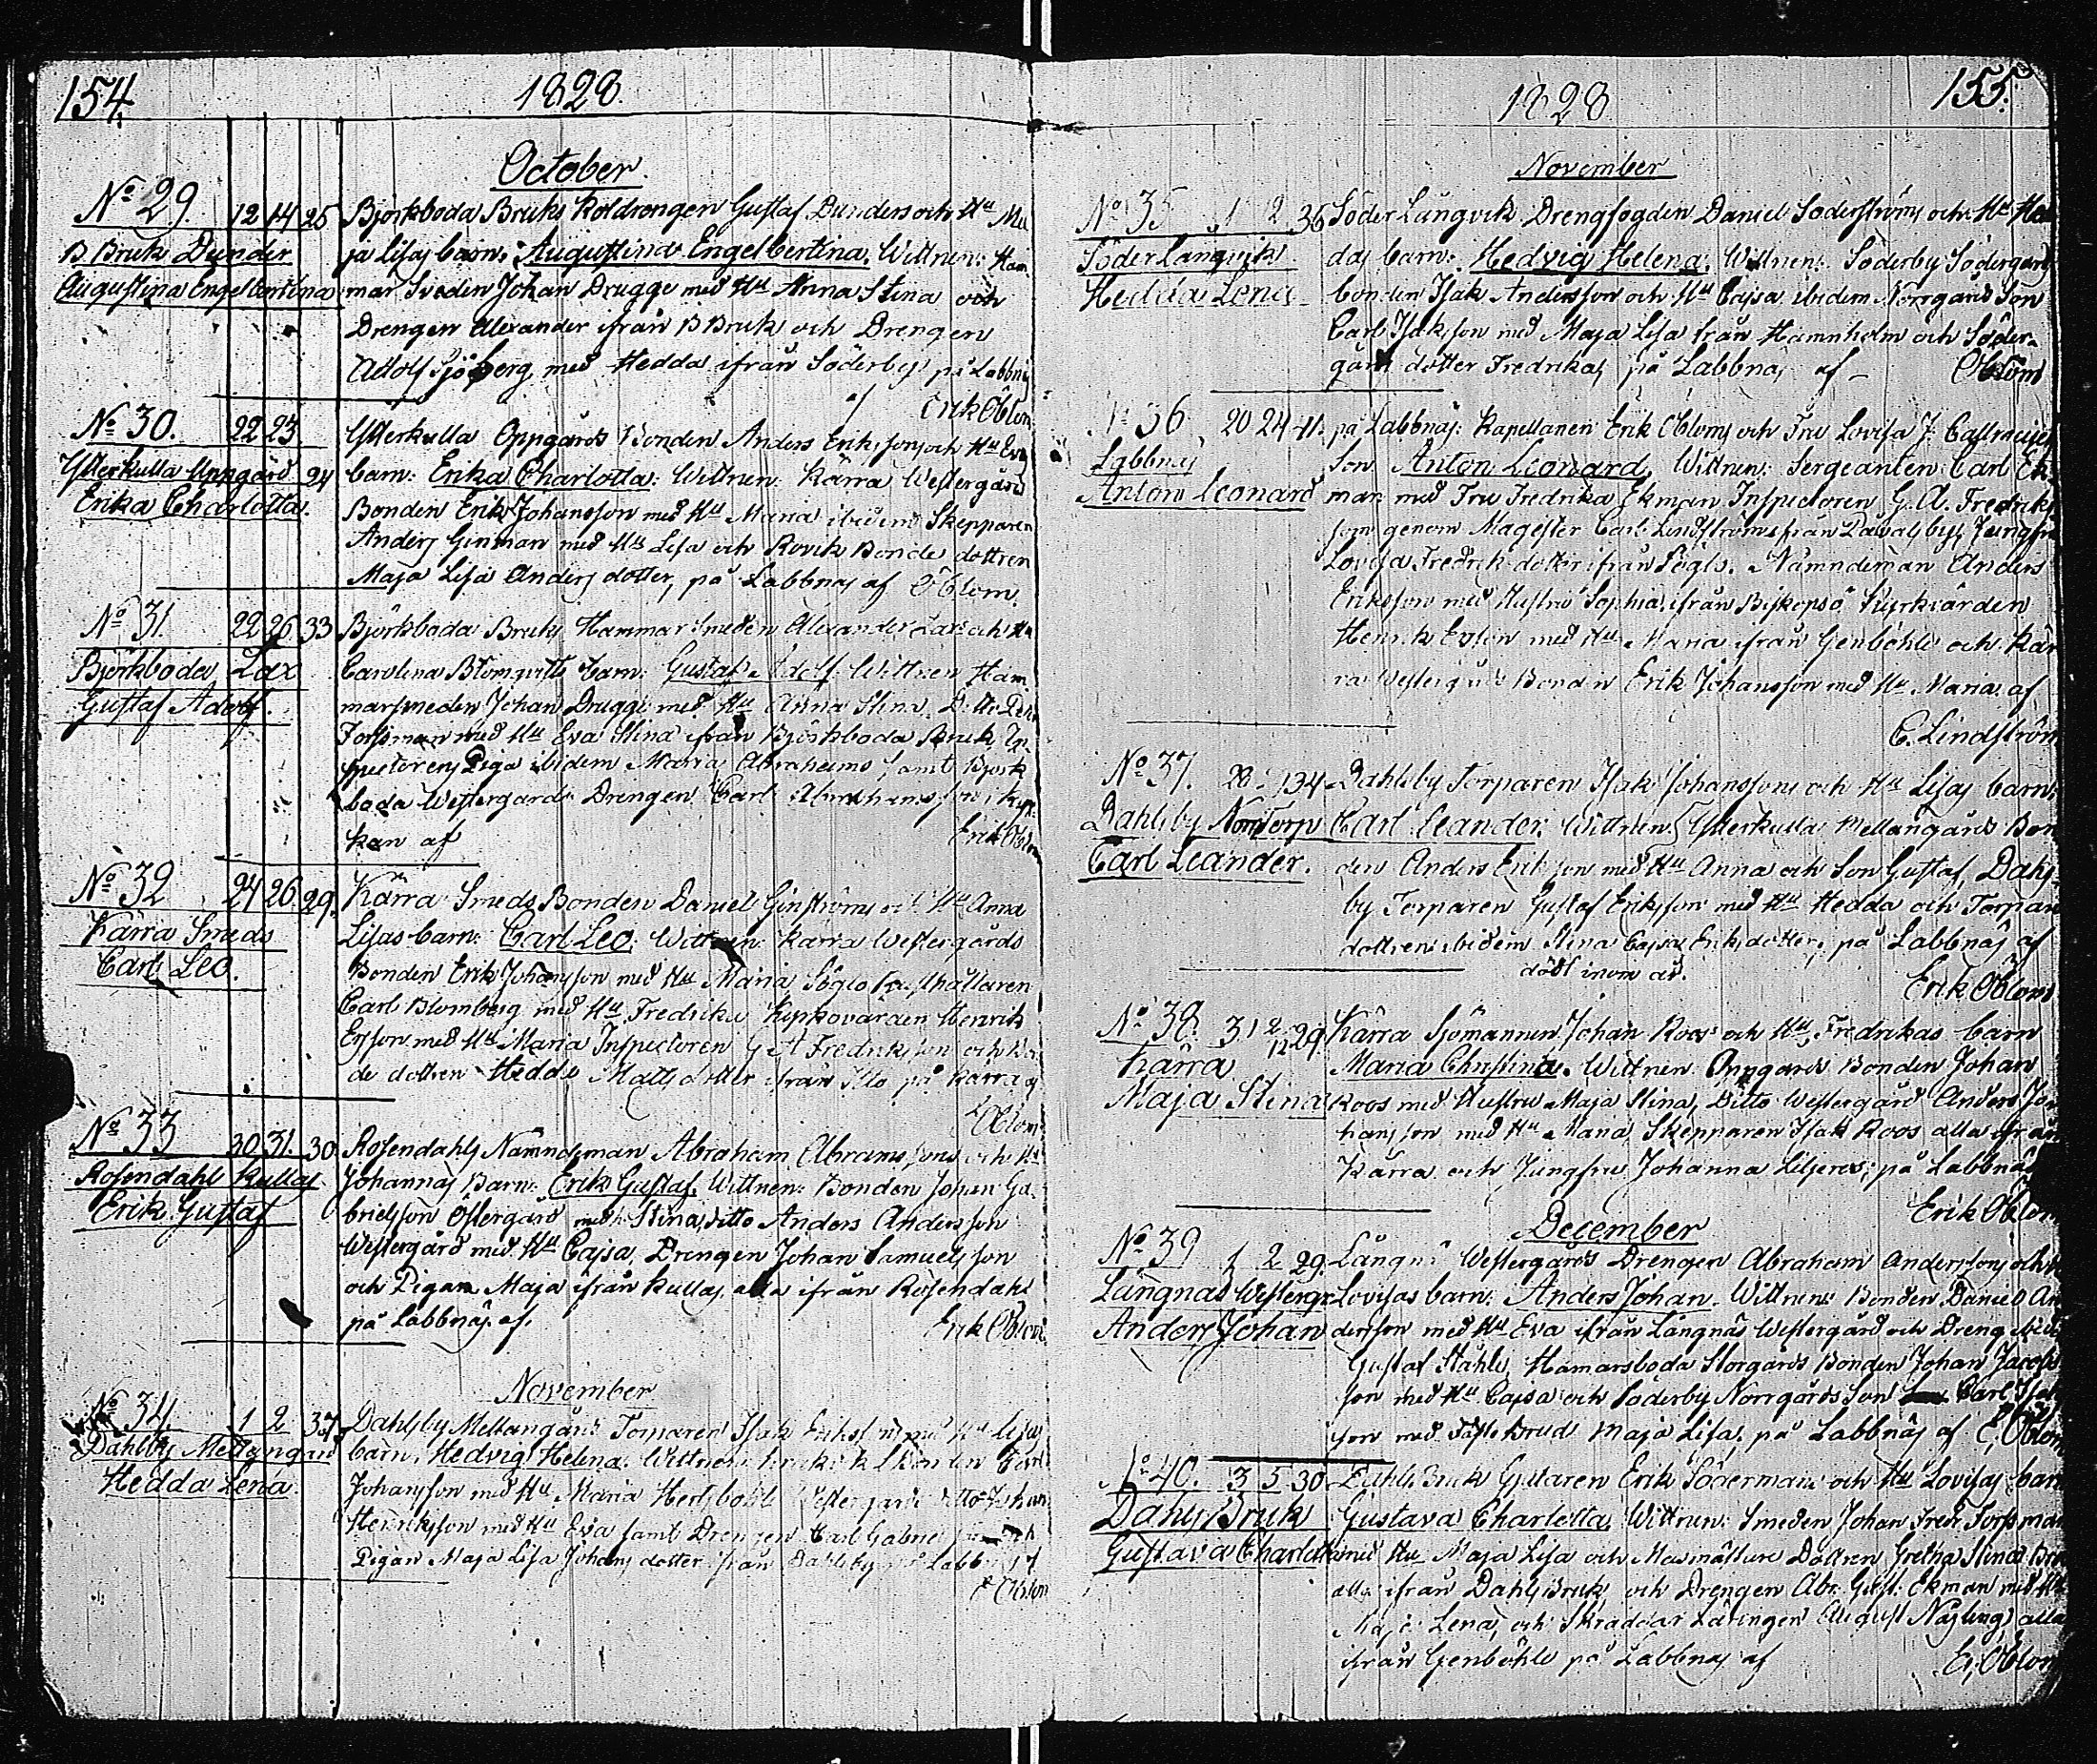 154.
1828.
October.
No 29. 12 14 25 Björkboda Bruks Koldrengen Gustaf Dunders och Hu Ma
B. Bruk Dunder ja Lisas barn: Augustina Engelbertina. Wittnen: Ham
Augustina Engelbertina mar Smeden Johan Drugge med Hu Anna Stina och
Drengen Alexander ifrån B Bruk och Drengen
Adolf Sjöberg med Hedda ifrån Söderby, på Labbnäs
af Erik Oblom
No 30. 22 23. Ytterkulla Oppgårds Bonden Anders Eriksons och Hu Evas
Ytterkulla Uppgård 24 barn: Erika Charlotta: Wittnen: Kärra Westergård
Erika Charlotta. Bonden Erik Johansson med Hu Maria ibidem Skepparen
Anders Genman med Hu Lisa och Rovik Bonde dottren
Maja Lisa Anders dotter, på Labbnäs af Oblom.
No 31. 22 26 33 Björkboda Bruks Hammar Smeden Alexander Lax och Hu
Björkboda Lax Carolina Blomqvists barn: Gustaf Adolf. Wittnen Ham
Gustaf Adolf. marsmeden Johan Drugge med Hu Anna Stina, Ditto
Forssman med Hu Eva Stina ifrån Björkboda Bruk, In-
spectorens Piga ibidem Maria Abrahams, samt Björk
boda Westergårds Drengen Carl Abrahamsson i kyr
kan af Erik Oblom
No 32 24 26. 29. Kärra Smeds Bonden Daniel Genströms och Hu Anna
Kärra Smeds Lisas barn: Carl Leo: Wittnen: Kärra Westergårds
Carl Leo. Bonden Erik Johansson med Hu Maria, Söglo Rusthållaren
Carl Blomberg med Hu Fredrika Kyrkovärden Henrik
Ersson med Hu Maria Inspectoren G A Fredriksson och
de dottren Hedda Matts dotter ifrån på Kärra af
Oblom
No 33 30. 31. 30. Rosendahls Nämndeman Abraham Abramssons och Hu
Rosendahl Kullas Johannas Barn: Erik Gustaf. Wittnen: Bonden Johan Ga
Erik Gustaf brielsson Östergård med Stina, ditto Anders Andersson
Westergård med Hu Cajsa, Drengen Johan Samuelsson
och Pigan Maja ifrån Kullas, alla ifrån Rosendahl
på Labbnäs. af. Erik Oblom
November
No 34. 1 2 37 Dahlsby Mellangårds Isak med Hu Lisas
Dahlsby Mellangård barn: Hedvig Helena. Wittnen: Carl
Hedda Lena. Johansson med Hu Maria Hertsböhle Westergård ditto Johan
Henriksson med Hu Eva samt Drengen Carl
Pigan Maja Lisa Johans dotter från Dahlsby på Labbnäs af
E Oblom
1828
155.
November
No 35 1 2. 36 Söder Långvik Drengfogden Daniel Söderströms och Hu Hed
Söder Långvik das barn: Hedvig Helena. Wittnen: Söderby Södergård
Hedda Lena Bonden Isak Andersson och Hu Cajsa ibidem Norrgård Son
Carl Isaksson med Maja Lisa från Hamnholm och Söder-
gård dotter Fredrika, på Labbnäs af Oblom
No 36 20 24 41. på Labbnäs: Kapellanen Erik Obloms och Fru Lovisa
Labbnäs Son Anton Leonard, Wittnen: Sergeanten Carl Ek-
Anton Leonard man med Fru Fredrika Ekman Inspectoren G. A. Fredriks
son genom Magister Carl Lindström ifrån Dalsby, Jungfru
Lovisa Fredriks dotter ifrån Söglo. Nämndeman Anders
Eriksson med Hustru Sophia, ifrån Biskopsö Kyrkvärden
Henrik med Hu Maria ifrån Genböhle och Kär
ra Westergårds Bonden Erik Johansson med Hu Maria. af
C. Lindström
No 37. 28. 34 Dahlsby Torparen Isak Johanssons och Hu Lisas barn:
Dahlsby Norrtorp Carl Leander. Wittnen: Ytterkulla Mellangårds Bon
Carl Leander. den Anders Eriksson med Hu Anna och Son Gustaf, Dahls-
by Torparen Gustaf Eriksson med Hu Hedda och Torpare
dottren ibidem Stina Cajsa Eriks dotter, på Labbnäs af
dödt inom år. Erik Oblom
No 38. 31 2/12 29 Kärra Sjömannen Johan Roos och Hu Fredrikas barn
Kärra Maria Christina. Wittnen Oppgårds Bonden Johan
Maja Stina Roos med Hustru Maja Stina, Ditto Westergård Anders Jo
hansson med Hu Maria, Skepparen Isak Roos alla ifrån
Kärra och Jungfru Johanna, på Labbnäs
Erik Oblom
December
No 39 1 2 29. Långnäs Westergårds Drengen Abraham Anderssons och Hu
Långnäs Westergr Lovisas barn: Anders Johan. Wittnen: Bonden Daniel An
Anders Johan dersson med Hu Eva ifrån Långnäs Westergård och Dreng
Gustaf Ståhle, Hamarsboda Storgårds Bonden Johan Jacobs
son med Hu Cajsa och Söderby Norrgårds Son Carl Isak
son med Fäste brud Maja Lisa, på Labbnäs af E, Oblom
No 40. 3 5 30 Dahls Bruk Gjutaren Erik Södermans och Hu Lovisas barn
Dahls Bruk Gustava Charlotta, Wittnen: Smeden Johan Fredr Forsman
Gustava Charlotta med Hu Maja Lisa och Mesmältare Dottren Gretha Stina
alla ifrån Dahls Bruk, och Drengen Abr. Gust. Ekman med Hu
Maja Lena, och Skräddar Läringen August Nägling, alla
ifrån Genböhle på Labbnäs af E, Oblom